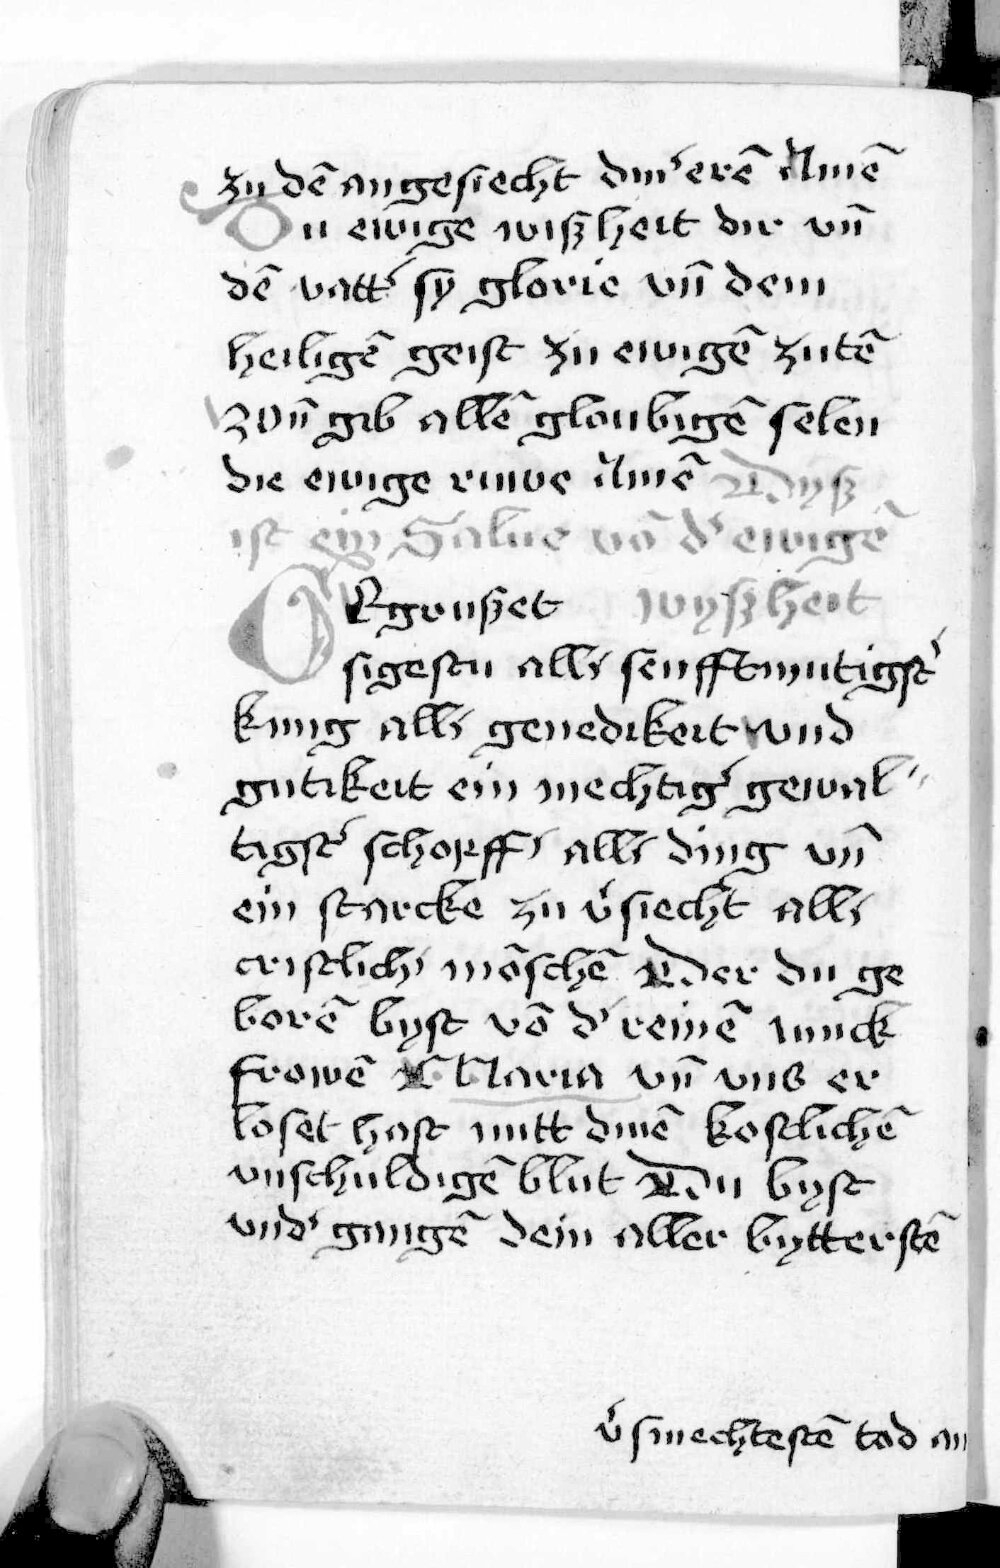 zu dē angesiecht din' erē Amē
Du ewige wiszheit dir vn̄
dē vatt' sy glorie vn̄ dem
heiligē geist zu ewigē zutē
Vn̄ gib allē gloubigē selen
die ewige ruwe Amē Dysz
ist ein Salue vō d' ewigē
GEgruszet wyszheit
sigestu all' senfftmutigst'
kung all' genedikeit vnd
gutikeit ein mechtig' gewal〃
tigst' schopff' all' ding vn̄
ein starcke zu v'siecht all'
cristlich' mōschē Der du ge
borē byst vō d' reinē iunck
frowē Maria vn̄ vns er
loset host mitt dinē kostlichē
vnschuldigē blut Du byst
vnd' gangē dein aller bytterstē
v'smechtestē tod an